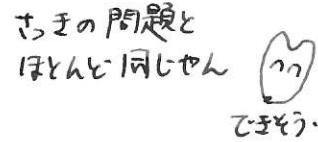 さっきの問題と
ほとんど同じやん
できそう.